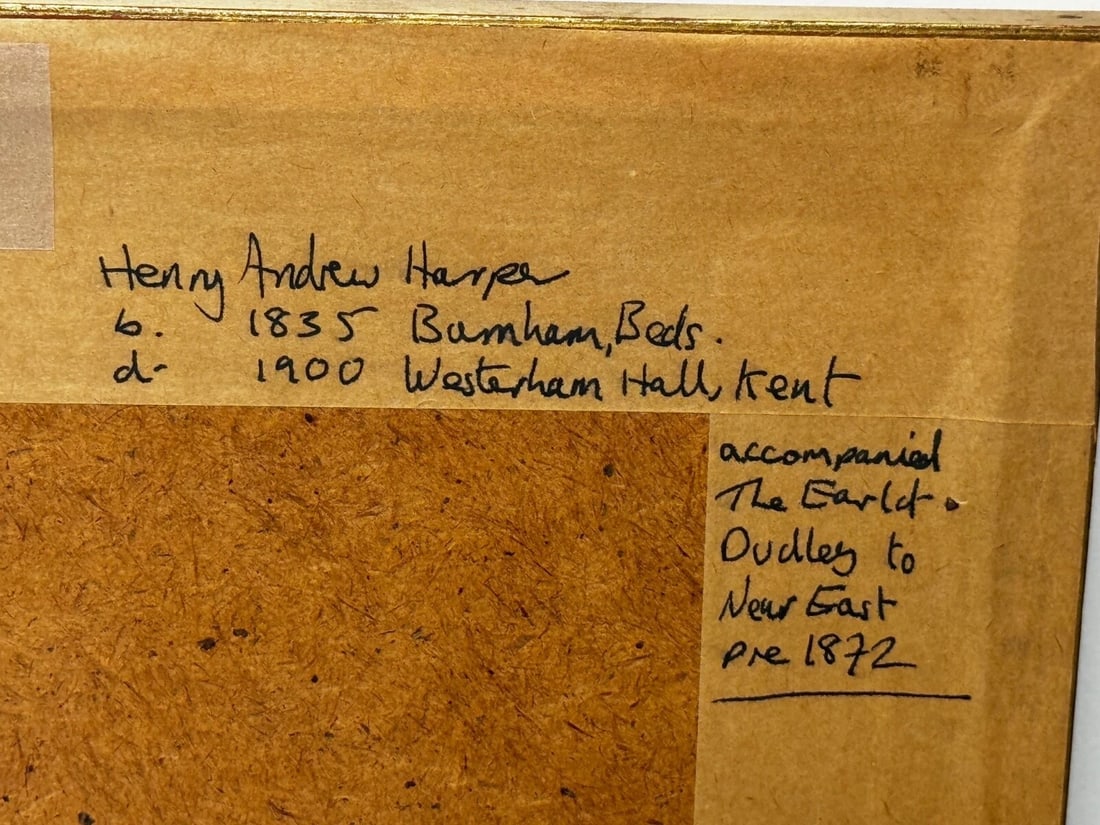 Henry Andrew Harper
b. 1835 Burnham, Beds.
d- 1900 Westerham Hall, Kent
accompanied
The Earl of
Dudley to
Near East
pre 1872